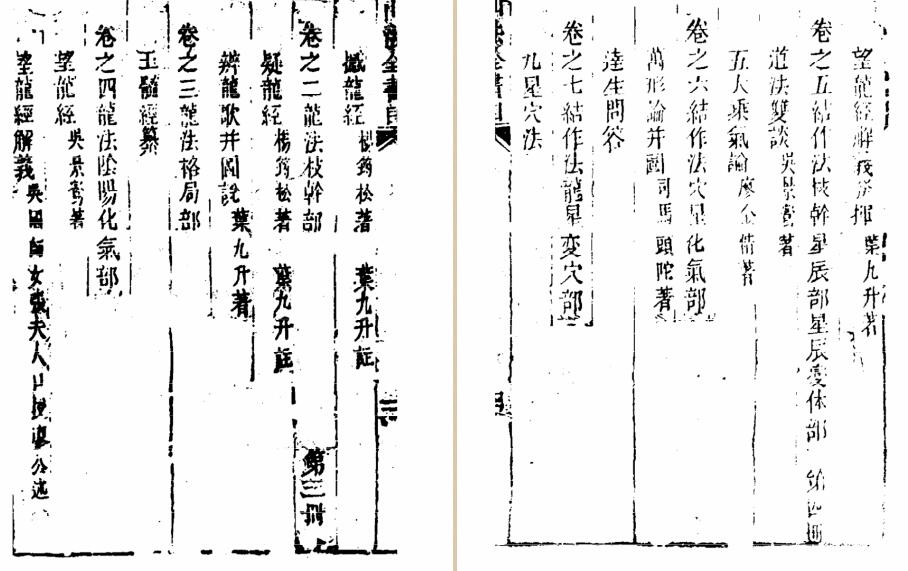 全書目
撼龍經 楊筠松著 葉九升註
卷之二龍法枝幹部 第三冊
疑龍經 楊筠松著 葉九升註
辨龍歌并圖說 葉九升著
卷之三龍法格局部
玉髓經纂
卷之四龍法陰陽化氣部
望龍經 吳景鸞著
望龍經解義 吳國師女張夫人口授廖公述
望龍經解義發揮 葉九升著
卷之五結作法枝幹星辰部星辰变体部 第四冊
道法雙談 吳景鸞著
五大乘氣論 廖公倩著
卷之六結作法穴星化氣部
萬形論并圖 司馬頭陀著
達生問答
卷之七結作法龍星変穴部
九星穴法
全書目